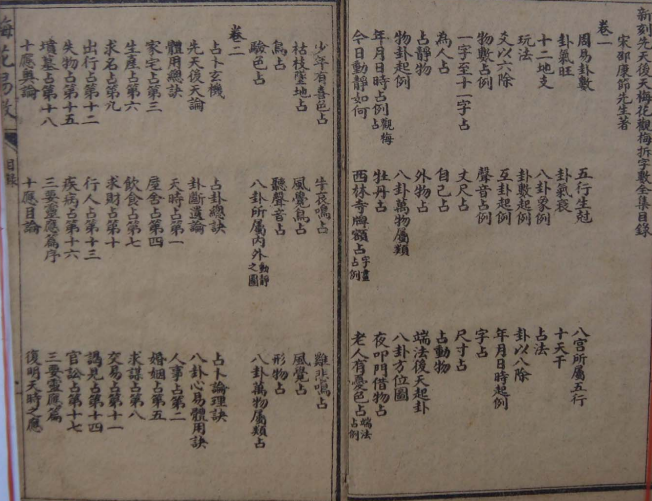 新刻先天後天梅花觀梅拆字數全集目錄
宋邵康節先生著
卷一
周易卦數 五行生剋 八宮所屬五行
卦氣旺 卦氣衰 十天干
十二地支 八卦象例 占法
玩法 卦數起例 卦以八除
爻以六除 互卦起例 年月日時起例
物數占例 聲音占例 字占
一字至十一字占 丈尺占 尺寸占
為人占 自己占 占動物
占靜物 外物占 端法後天起卦
物卦起例 八卦萬物屬類 八卦方位圖
年月日時占例觀梅占 牡丹占 夜叩門借物占
今日動靜如何 西林寺牌額占字畫占例 老人有憂色占端法占例
少年有喜色占 牛夜鳴占 雞悲鳴占
枯枝墜地占 風覺鳥占 風覺占
鳥占 聽聲音占 形物占
驗色占 八卦所屬內外動靜之圖 八卦萬物屬類占
卷二
占卜玄機 占卦總訣 占卜論理訣
先天後天論 卦斷遺論 八卦心易體用訣
體用總訣 天時占第一 人事占第二
家宅占第三 屋舍占第四 婚姻占第五
生產占第六 飲食占第七 求謀占第八
求名占第九 求財占第十 交易占第十一
出行占第十二 行人占第十三 謁見占第十四
失物占第十五 疾病占第十六 官訟占第十七
墳墓占第十八 三要靈應篇序 三要靈應篇
十應奧論 十應目論 復明天時之應
梅花易數 目錄